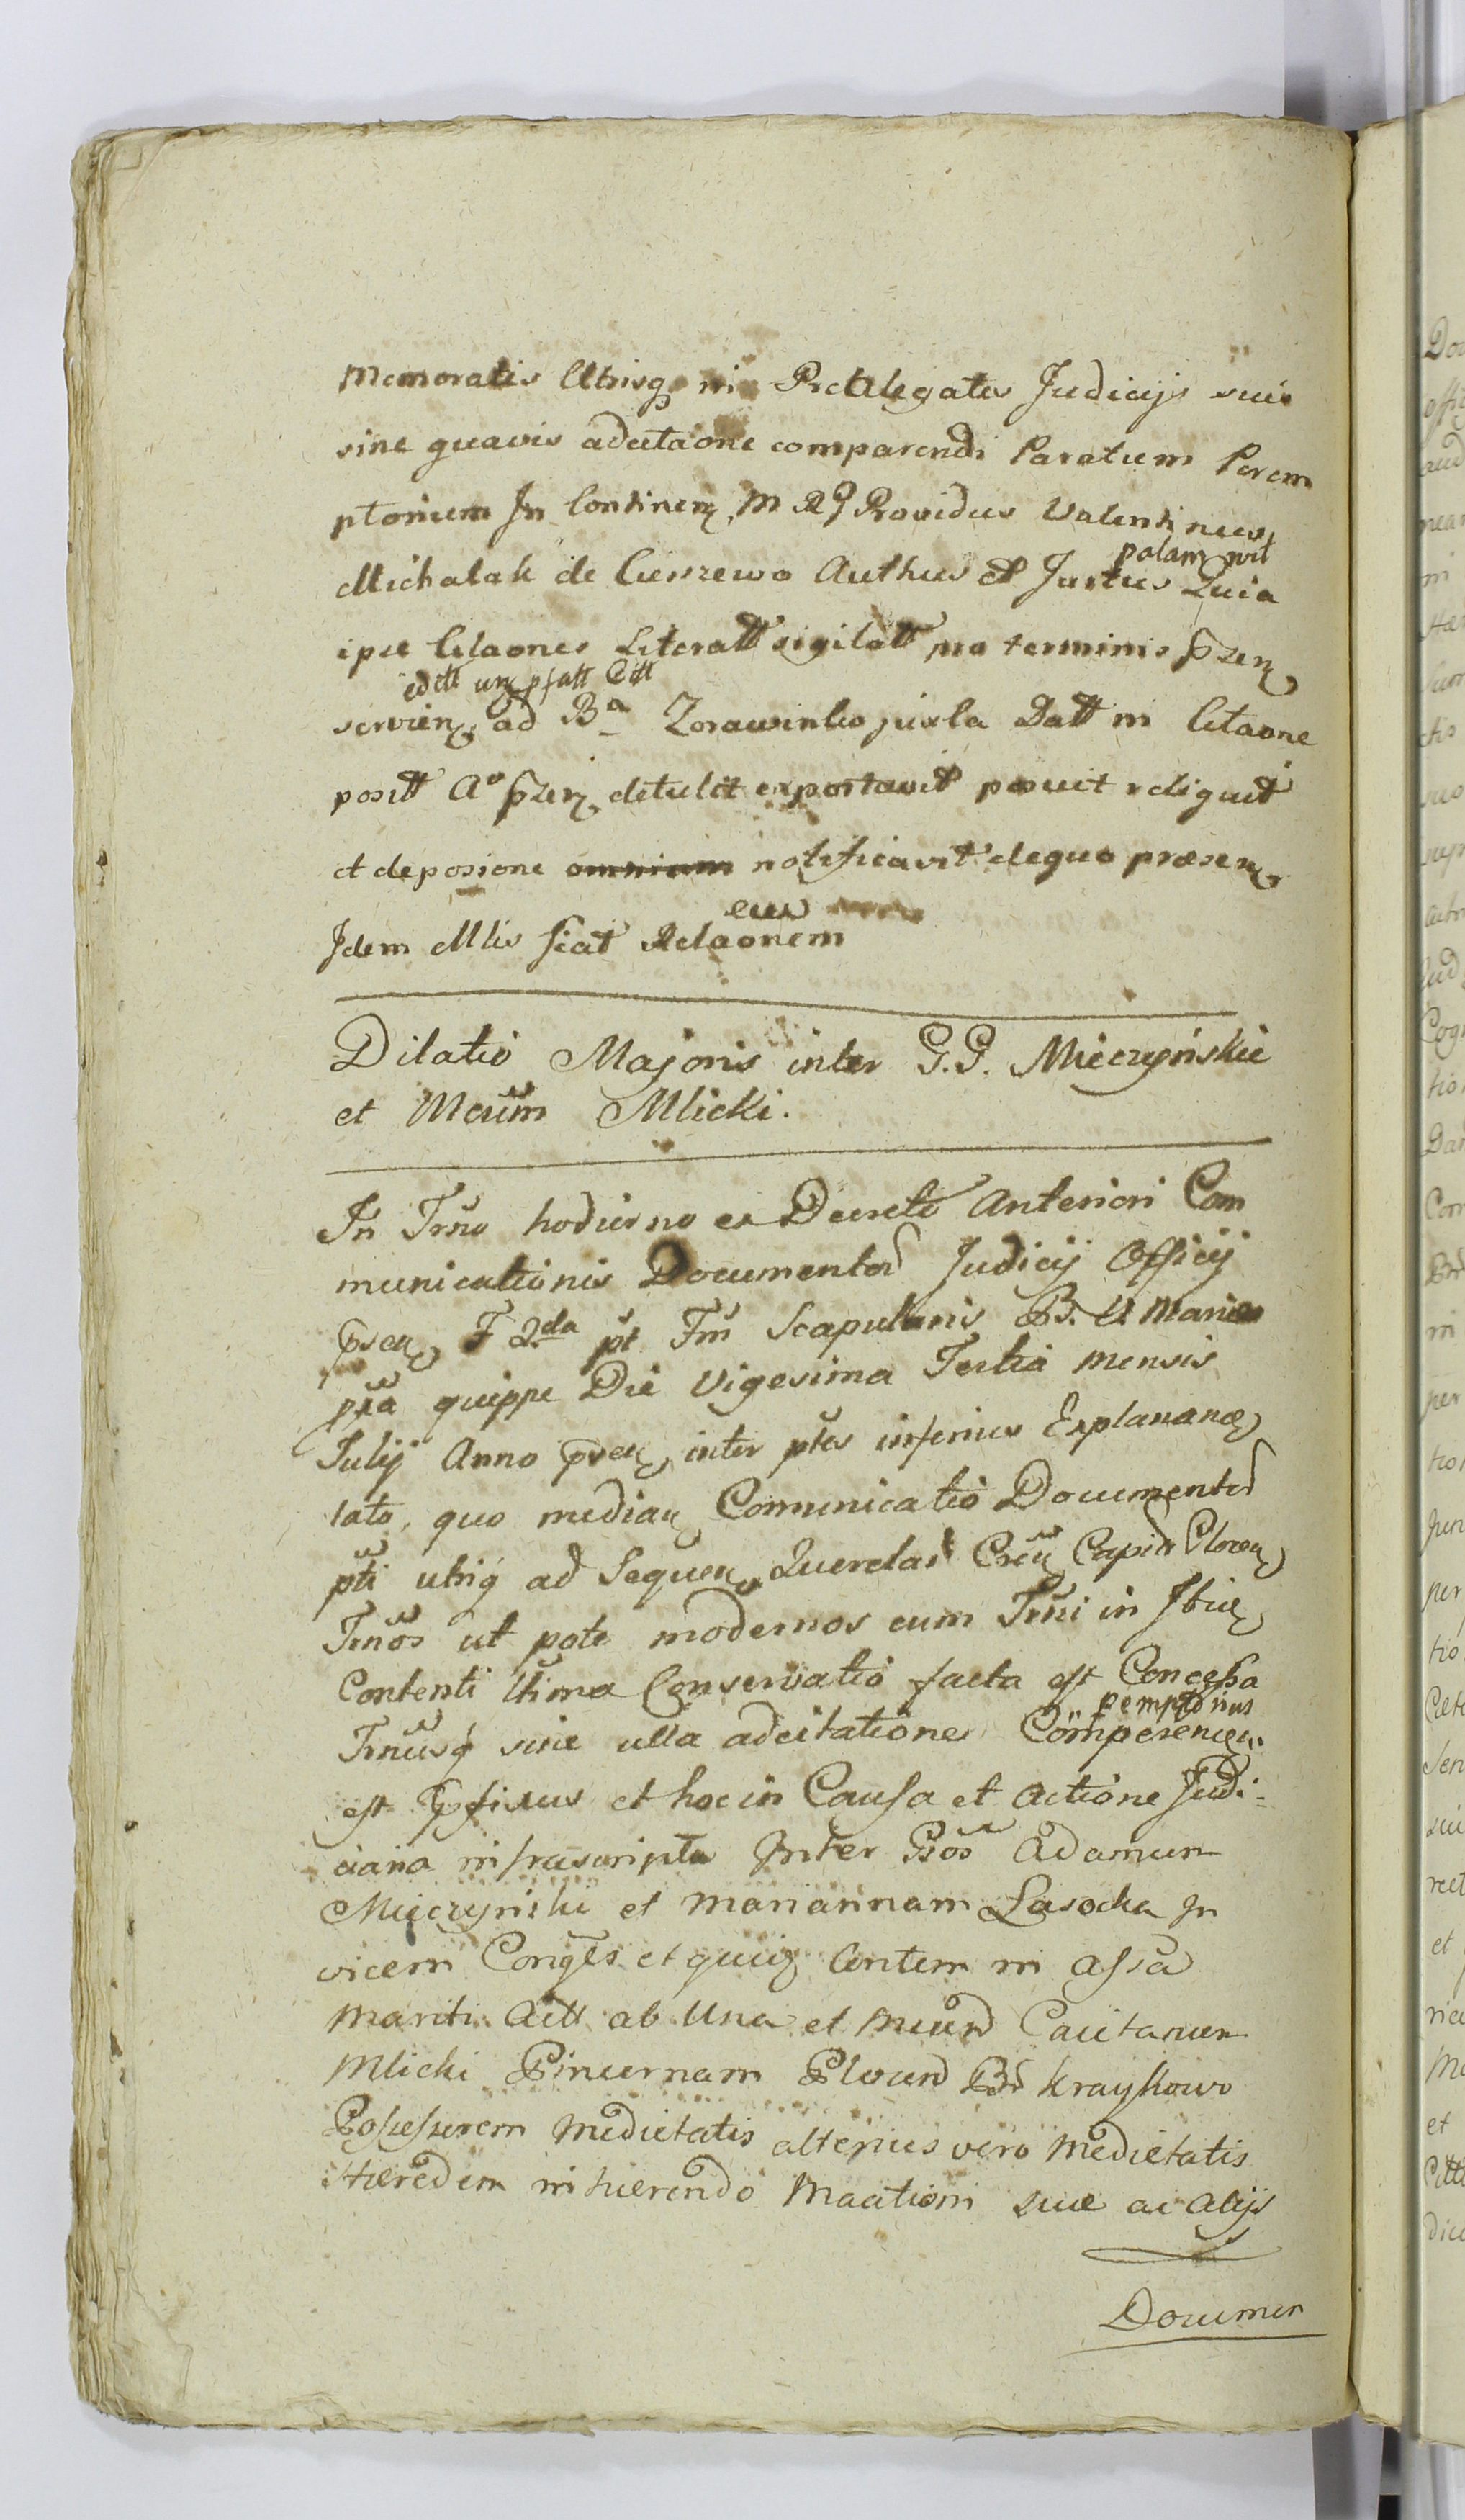 Memoratis Utrisq in Præallegatis Judicijs suis
sine quavis adcitaone comparendi Paratum Perem
ptorium In Continen M Rq Providus Valentinus
Michalak de Cieszewo Authus et Juratus palam Quia
ipse Citaones Literatt sigilatt pro terminis pzen
editt un pfatt Citt
servien ad Ba Zorawinko juxta Datt in Citaone
positt Ao pzen detulit exportavit posuit reliquit
et deposione omnium notificavit de quo præsen
eus
Idem Mlis fecit Relaonem
Dilatio Majoris inter G.G. Mieczyńskie
et Mcum Mlicki.
In Trno hodierno ex Decreto Anteriori Com
municationis Documentor Judicij Officij
psen F 2da pt Fm Scapularis B. V. Mariæ
pxa quippe Die Vigesima Tertia mensis
Julij Anno psen inter ptes inferius Explanan
lato, quo median Comunicatio Documentor
pti utriq ad Sequen Querelas Cren Capit Plocen
Trnos ut pote modernos cum Trni in Ibie
Contenti Utima Conservatio facta est Concessa
pemptorius
Trnusq sine ulla adcitatione Comperen
est pfixus et hoc in Causa et Actione Judi-
ciaria infrascripta Inter Gsos Adamum
Mieczyński et Mariannam Lasocka In
vicem Conges et quiq Contem in assa
Mariti Actt ab Una et Mcum Caietanum
Mlicki Pincernam Plocen Br Kraykowo
Possessorem Medietatis alterius vero Medietatis
Hæredem inhærendo Maationi suæ ac Alijs
Documen